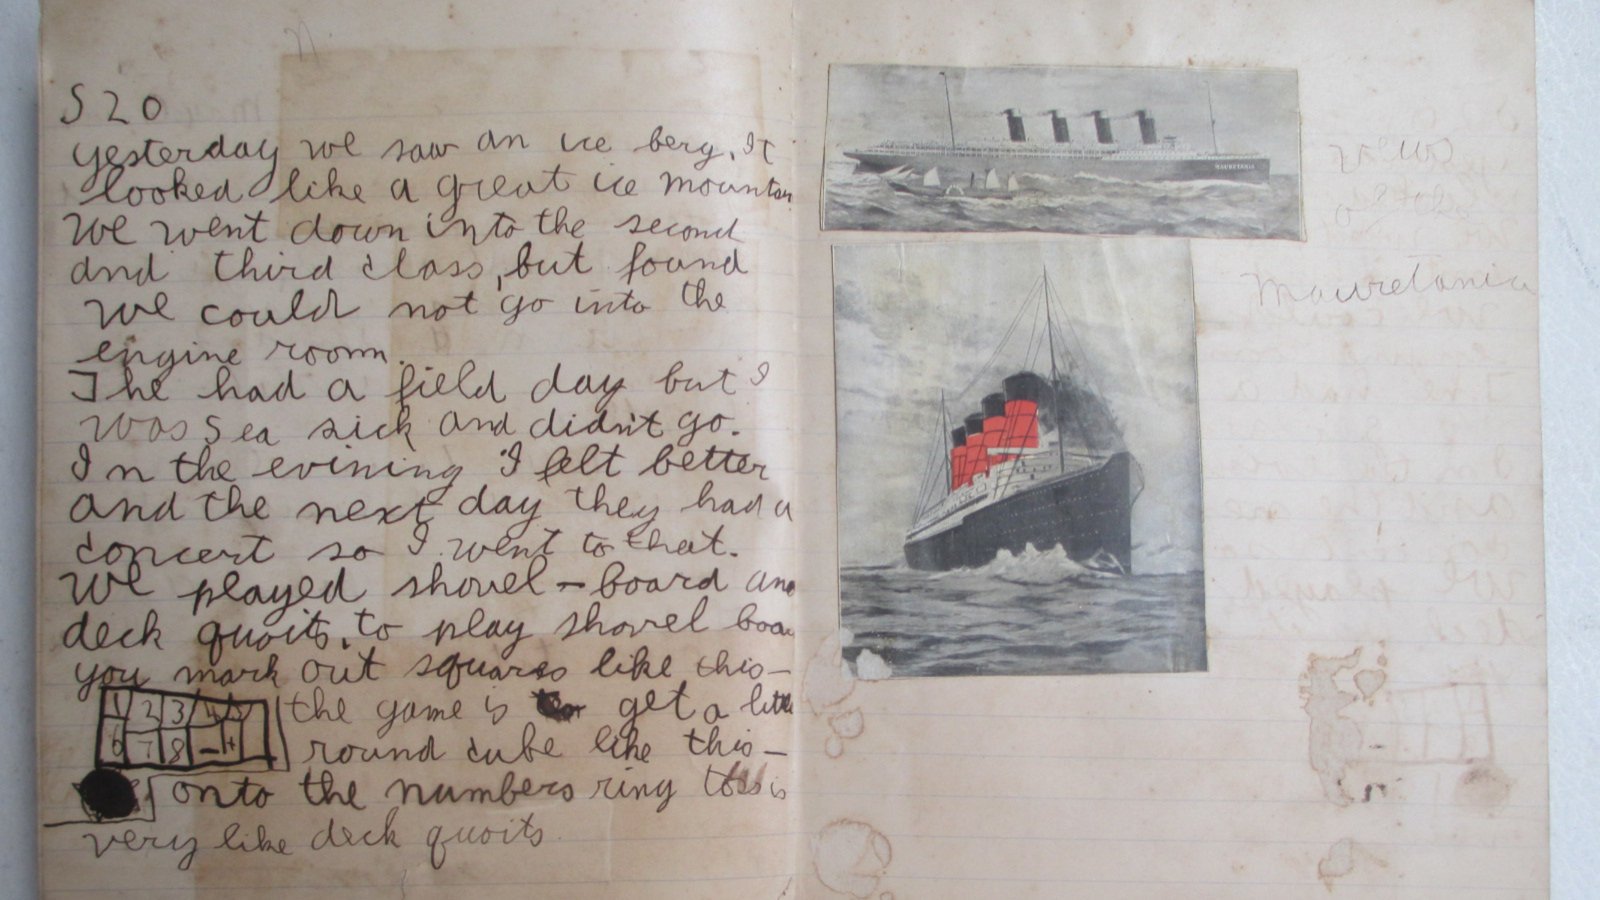 S 20
yesterday we saw an ice berg. It
looked like a great ice mountain
we went down into the second
and third class, but found
we could not go into the
engine room.
The had a field day but I
was sea sick and didn't go.
In the evining I felt better
and the next day they had a
concert so I went to that.
we played shovel-board and
deck quoits. to play shovel boar
you mark out squares like this—
1 2 3 4 5 the game is to get a little
6 7 8 - + round cube like this—
onto the numbers ring toss is
very like deck quoits.
MAURETANIA
Mauretania